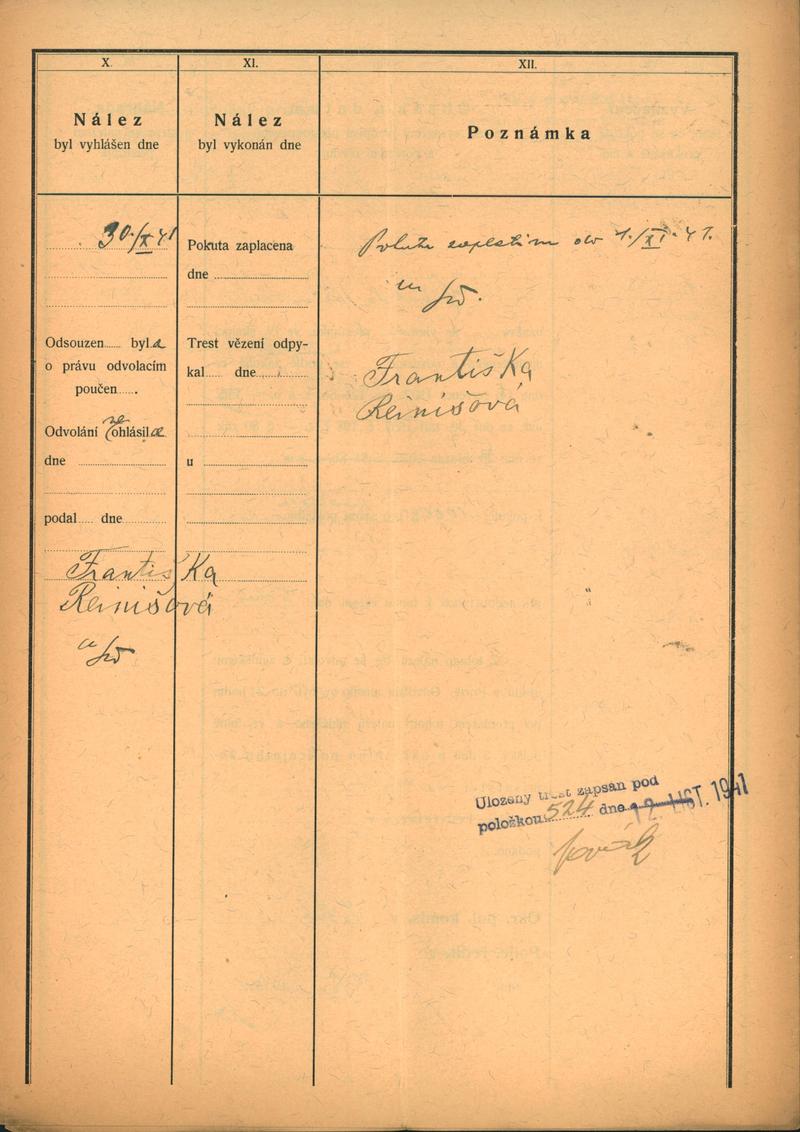 X.
Nález
byl vyhlášen dne
30./X 41
Odsouzen...... byla
o právu odvolacím
poučen......
Odvolání ohlásila
dne
podal..... dne
Františka
Reinišová
XI.
Nález
byl vykonán dne
Pokuta zaplacena
dne
Trest vězení odpy-
kal..... dne
u
XII.
Poznámka
Pokutu zaplatím do 1./XI. 41.
Františka
Reinišová
Uložený trest zapsán pod
položkou 524 dne 12. LIST. 1941